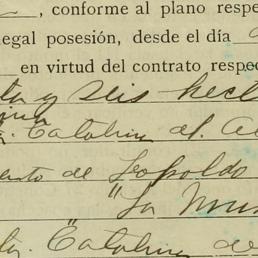 , conforme al plano respe
legal posesión, desde el día
en virtud del contrato respec
ta y seis hect
Catalina del
ento de Leopoldo
"La
"Catalina de